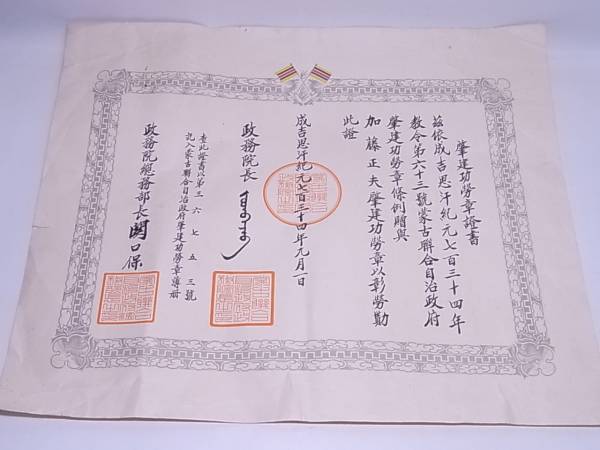 肇建功勞章證書
茲依成吉思汗紀元七百三十四年
教令第六十三號蒙古聯合自治政府
肇建功勞章條例贈與
加藤正夫肇建功勞章以彰勞勩
此證
成吉思汗紀元七百三十四年元月一日
政務院長
查此證書以第三六七五三號
記入蒙古聯合自治政府肇建功勞章簿冊
政務院總務部長關口保